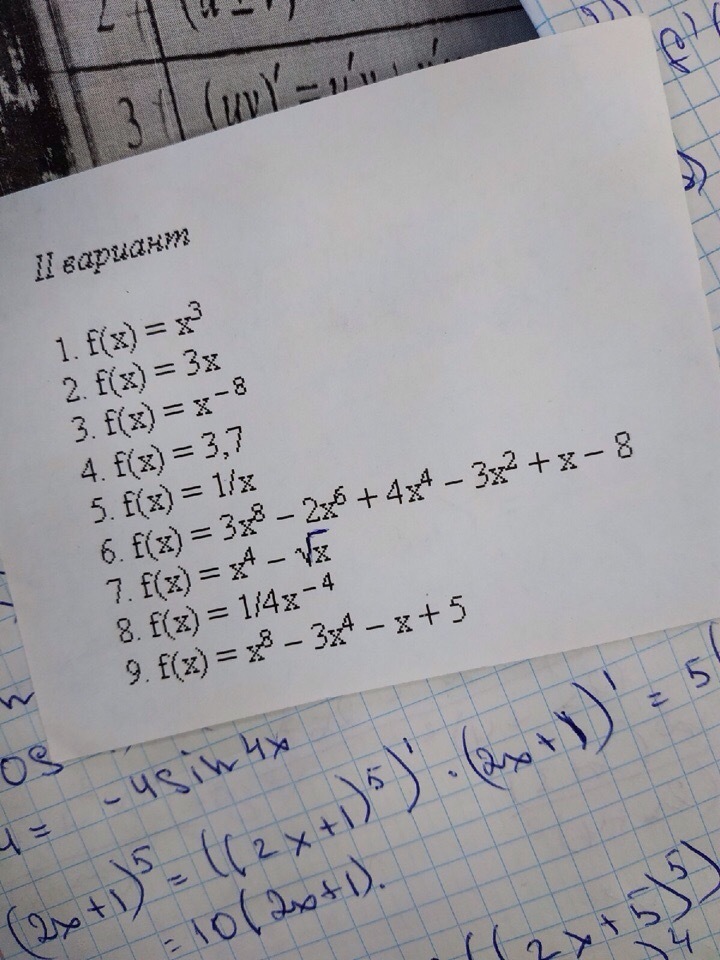 3 (uv)' = u'v + u'v
II вариант
1. f(x) = x³
2. f(x) = 3x
3. f(x) = x⁻⁸
4. f(x) = 3,7
5. f(x) = 1/x
6. f(x) = 3x⁸ − 2x⁶ + 4x⁴ − 3x² + x − 8
7. f(x) = x⁴ − √x
8. f(x) = 1/4x⁻⁴
9. f(x) = x⁸ − 3x⁴ − x + 5
os
= −4sin4x
(2x+1)⁵ = ((2x+1)⁵)' · (2x+1)' = 5(
= 10(2x+1).
((2x+5)⁵)